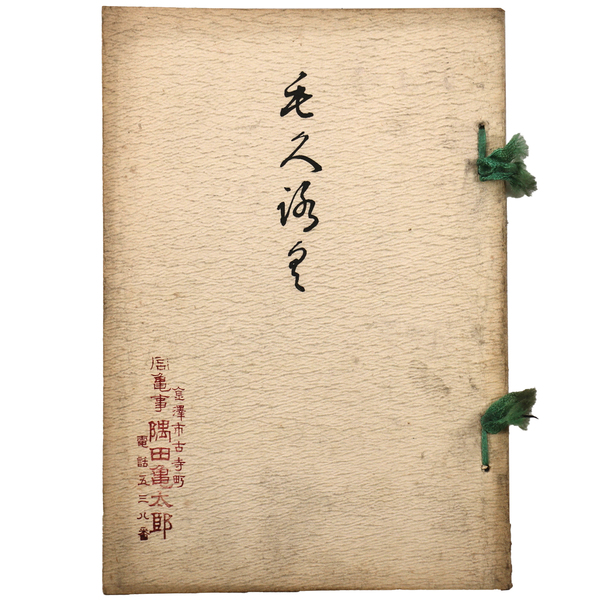 毛久淥具
金澤市古寺町
信亀事 隅田亀太郎
電話五三八番